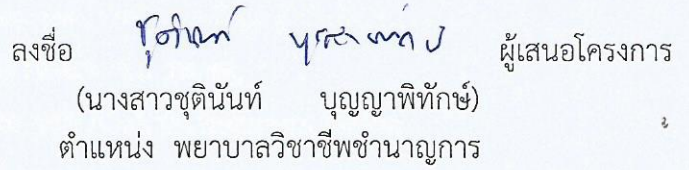 ลงชื่อ ชุตินันท์ บุญญาพิทักษ์ ผู้เสนอโครงการ
(นางสาวชุตินันท์ บุญญาพิทักษ์)
ตำแหน่ง พยาบาลวิชาชีพชำนาญการ